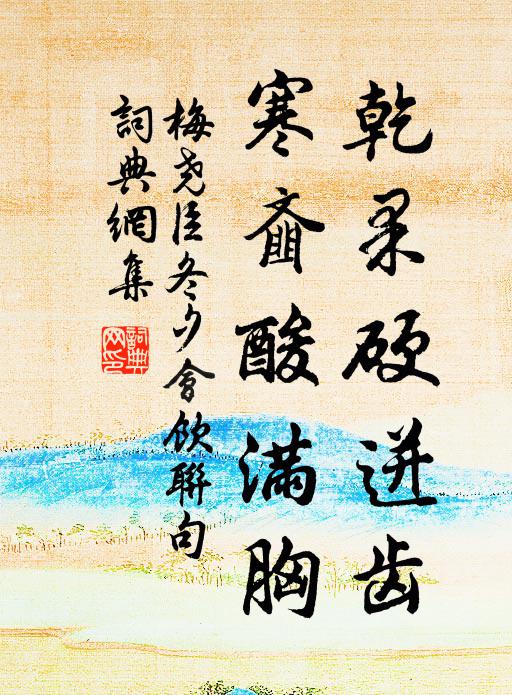 乾果硬迸齿
寒齑酸满胸
梅尧臣冬夕會飲聯句
詞典網集
詞典网印